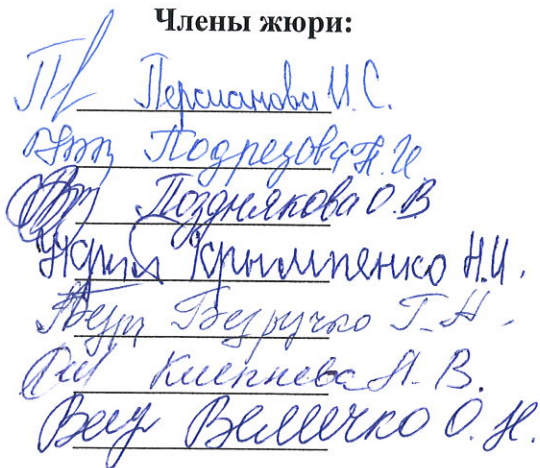 Члены жюри:
Персианова И.С.
Подрезова Н.И.
Позднякова О.В
Крымпенко Н.И.
Безручко Т.Н.
А.В.
Величко О.Н.